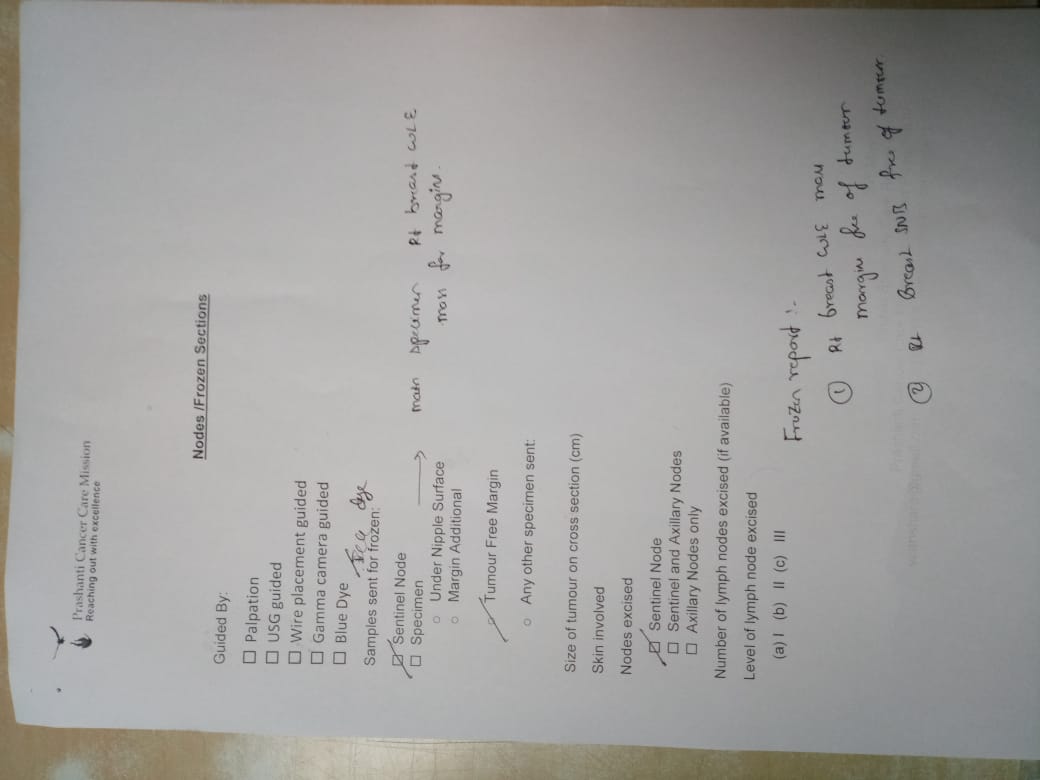 Prashanti Cancer Care Mission
Reaching out with excellence
Nodes /Frozen Sections
Guided By:
☐ Palpation
☐ USG guided
☐ Wire placement guided
☐ Gamma camera guided
☐ Blue Dye ICG dye
Samples sent for frozen:
☑ Sentinel Node
☐ Specimen → main specimen Rt breast WLE
mass for margins.
○ Under Nipple Surface
○ Margin Additional
Tumour Free Margin
○ Any other specimen sent:
Size of tumour on cross section (cm)
Skin involved
Nodes excised
☑ Sentinel Node
☐ Sentinel and Axillary Nodes
☐ Axillary Nodes only
Number of lymph nodes excised (if available)
Level of lymph node excised
(a) I (b) II (c) III
Frozen report :-
① Rt breast WLE mass
margin free of tumour
② Rt Breast SNB free of tumour.